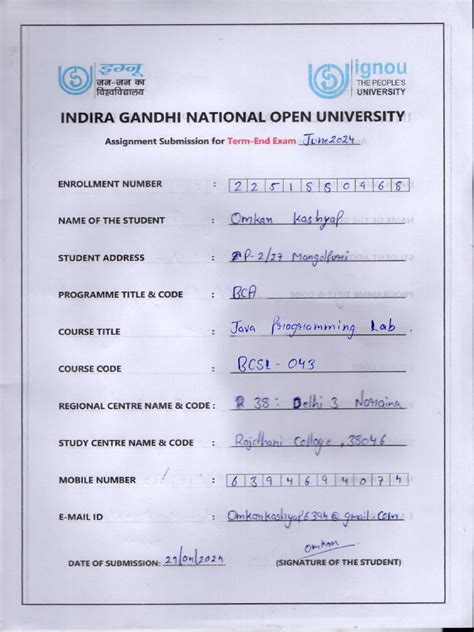 इग्नू ignou
जन-जन का THE PEOPLE'S
विश्वविद्यालय UNIVERSITY
INDIRA GANDHI NATIONAL OPEN UNIVERSITY
Assignment Submission for Term-End Exam June 2024
ENROLLMENT NUMBER : 2251880968
NAME OF THE STUDENT : Omkan Kashyap
STUDENT ADDRESS : P-2/27 Mangolpuri
PROGRAMME TITLE & CODE : BCA
COURSE TITLE : Java Programming Lab.
COURSE CODE : BCSL - 043
REGIONAL CENTRE NAME & CODE : 38: Delhi 3 Naraina
STUDY CENTRE NAME & CODE : Rajdhani College, 38046
MOBILE NUMBER : 6394694074
E-MAIL ID : Omkankashyap6394@gmail.com
Omkan
DATE OF SUBMISSION: 29/04/2024 (SIGNATURE OF THE STUDENT)